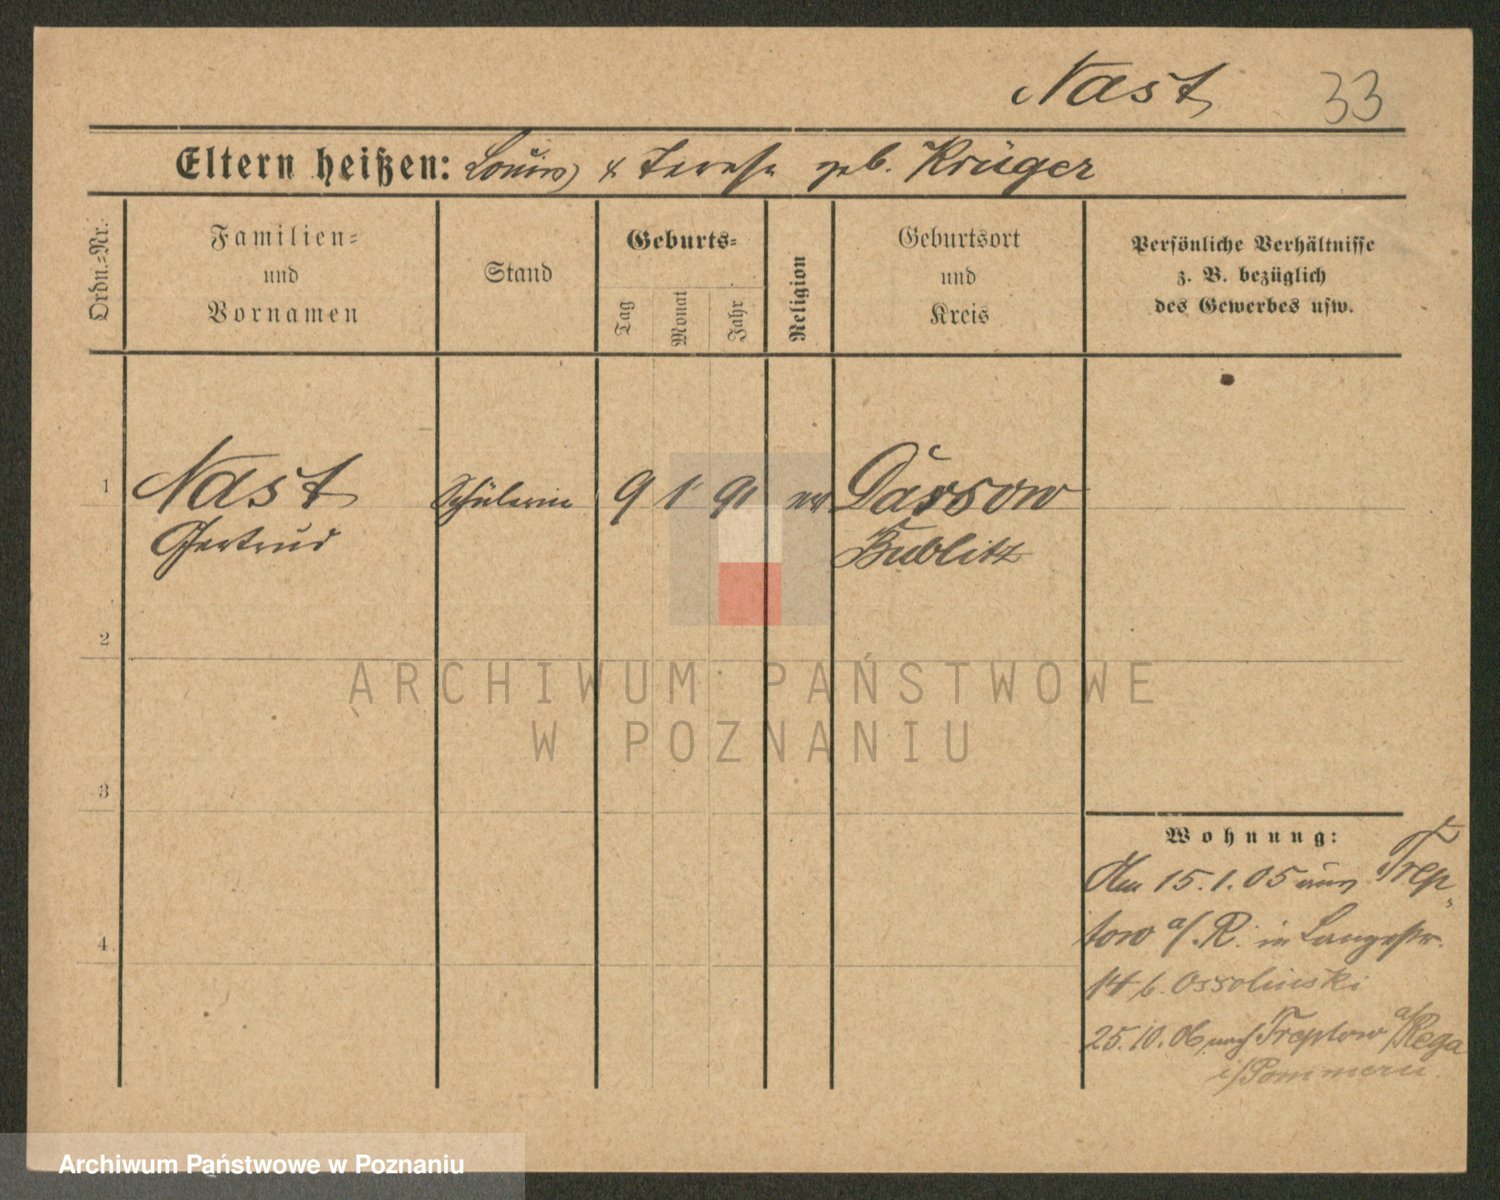 Nast 33
Eltern heißen: Louis & Terese geb. Krüger
Ordn.=Nr.
Familien=
und
Vornamen
Stand
Geburts=
Tag
Monat
Jahr
Religion
Geburtsort
und
Kreis
Persönliche Verhältnisse
z. B. bezüglich
des Gewerbes usw.
1 Nast Schülerin 9 1 91 ev Darsow
Gertrud Bublitz
2
3
4
Wohnung:
Am 15.1.05 aus Trep-
tow a/R. in Langestr.
14 b. Ossolinski
25.10.06 nach Treptow a/Rega
i/Pommern
ARCHIWUM PAŃSTWOWE
W POZNANIU
Archiwum Państwowe w Poznaniu